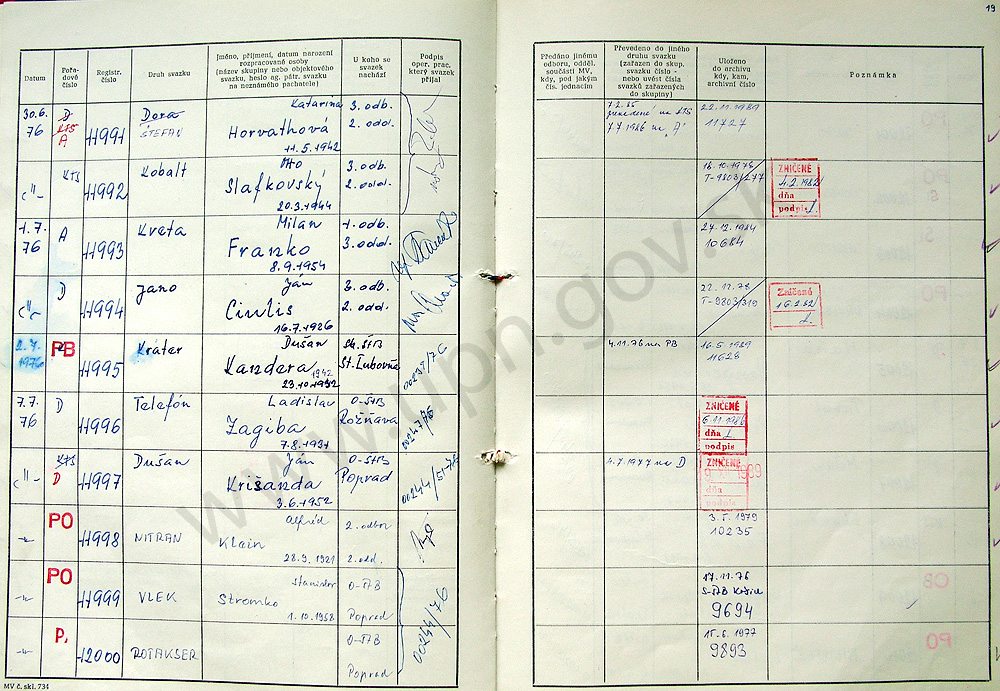 19
Datum
Pořa-
dové
číslo
Registr.
číslo
Druh svazku
Jméno, příjmení, datum narození
rozpracované osoby
(název skupiny nebo objektového
svazku, heslo ag. pátr. svazku
na neznámého pachatele)
U koho se
svazek
nachází
Podpis
oper. prac.
který svazek
přijal
Předáno jinému
odboru, odděl.
součásti MV,
kdy, pod jakým
čís. jednacím
Převedeno do jiného
druhu svazku
(zařazen do skup.
svazku číslo -
nebo uvést čísla
svazků zařazených
do skupiny)
Uloženo
do archivu
kdy, kam,
archivní číslo
Poznámka
30.6.
76
A
11991
Dora
ŠTEFAN
Katarína
Horvathová
11.5.1942
3. odb.
2. odd.
7.7.1986 na "A"
22.11.1989
11727
KTS
11992
Kobalt
Otto
Slafkovský
20.3.1944
3. odb.
2. odd.
T-9803/277
ZNIČENÉ
4.2.1982
dňa
podpis
1.7.
76
A
11993
Kveta
Milan
Franko
8.9.1954
1. odb.
3. odd.
27.12.1984
10684
D
11994
Jano
Ján
Civlis
16.7.1926
3. odb.
2. odd.
22.12.78
T-9803/319
Zničené
16.2.82
2.7.
1976
PB
11995
Kráter
Dušan
Kandera
1942
St. Ľubovňa
00237/76
4.11.76 na PB
16.5.1989
11628
7.7.
76
D
11996
Telefón
Ladislav
Zagiba
7.8.1931
O-ŠtB
Rožňava
00247/76
ZNIČENÉ
6.11.1986
dňa
podpis
KTS
D
11997
Dušan
Ján
Krišanda
3.6.1952
O-ŠtB
Poprad
4.7.1977 na D
ZNIČENÉ
dňa
podpis
PO
11998
NITRAN
Alfréd
Klein
28.9.1921
2. odbor
2. odd.
1979
10235
PO
11999
VLEK
Stanislav
Stromko
1.10.1958
O-ŠtB
Poprad
00244/76
17.11.76
S-ŠtB Košice
9694
P.
12000
ROTAKSER
O-ŠtB
Poprad
15.6.1977
9893
MV č. skl. 734
www.upn.gov.sk